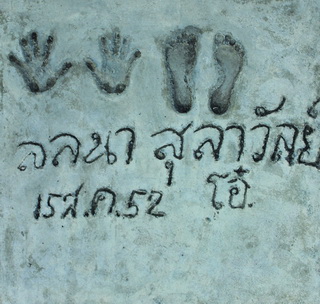 ลลนา สุลาวัลย์
15 ส.ค.52 โอ๋.